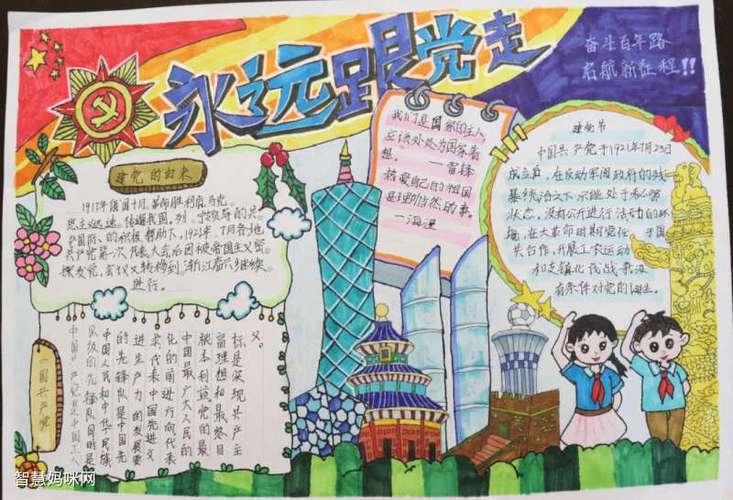 永远跟党走
奋斗百年路
启航新征程!!
建党的由来
1917年俄国十月革命胜利后,马克
思主义迅速传遍我国,列宁领导的共
产国际的积极帮助下,1921年7月各地
共产党第一次代表大会后因被帝国主义密
探发觉,会议又转移到浙江嘉兴继续
进行。
我们是国家的主人,
应该处处为国家着
想。
——雷锋
若爱自己的祖国
是理所当然的事。
——海涅
建党节
中国共产党于1921年7月23日
成立后,在反动军阀政府的残
暴统治之下,不能处于秘密
状态,没有公开进行活动的环
境,在大革命时期
国共合作,开展工农运动
和支援北伐战争,没
有条件对党的诞进。
中国共产党
中国共产党是中国工人
阶级的先锋队,同时是
中国人民和中华民族
的先锋队,是中国先
进生产力的发展要
求,代表中国先进文
化的前进方向,代表
中国最广大人民的
根本利益。党的最
高理想和最终目
标是实现共产主
义。
智慧妈咪网